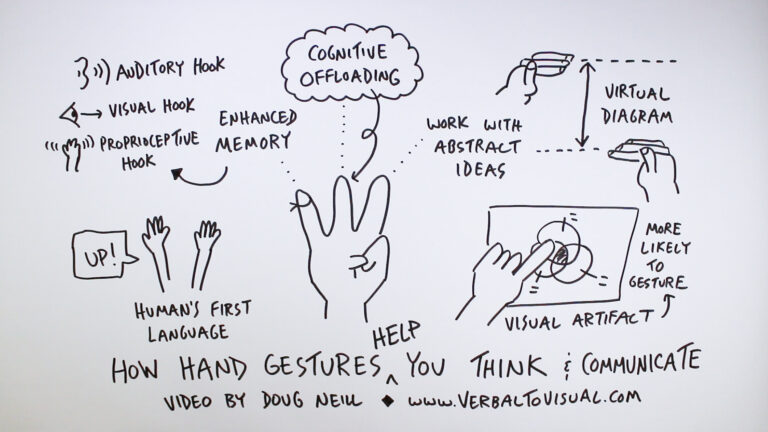 AUDITORY HOOK
VISUAL HOOK
PROPRIOCEPTIVE
HOOK
ENHANCED
MEMORY
COGNITIVE
OFFLOADING
WORK WITH
ABSTRACT
IDEAS
VIRTUAL
DIAGRAM
UP!
HUMAN'S FIRST
LANGUAGE
MORE
LIKELY
TO
GESTURE
VISUAL ARTIFACT
HOW HAND GESTURES HELP YOU THINK & COMMUNICATE
VIDEO BY DOUG NEILL ◆ WWW.VERBALTOVISUAL.COM